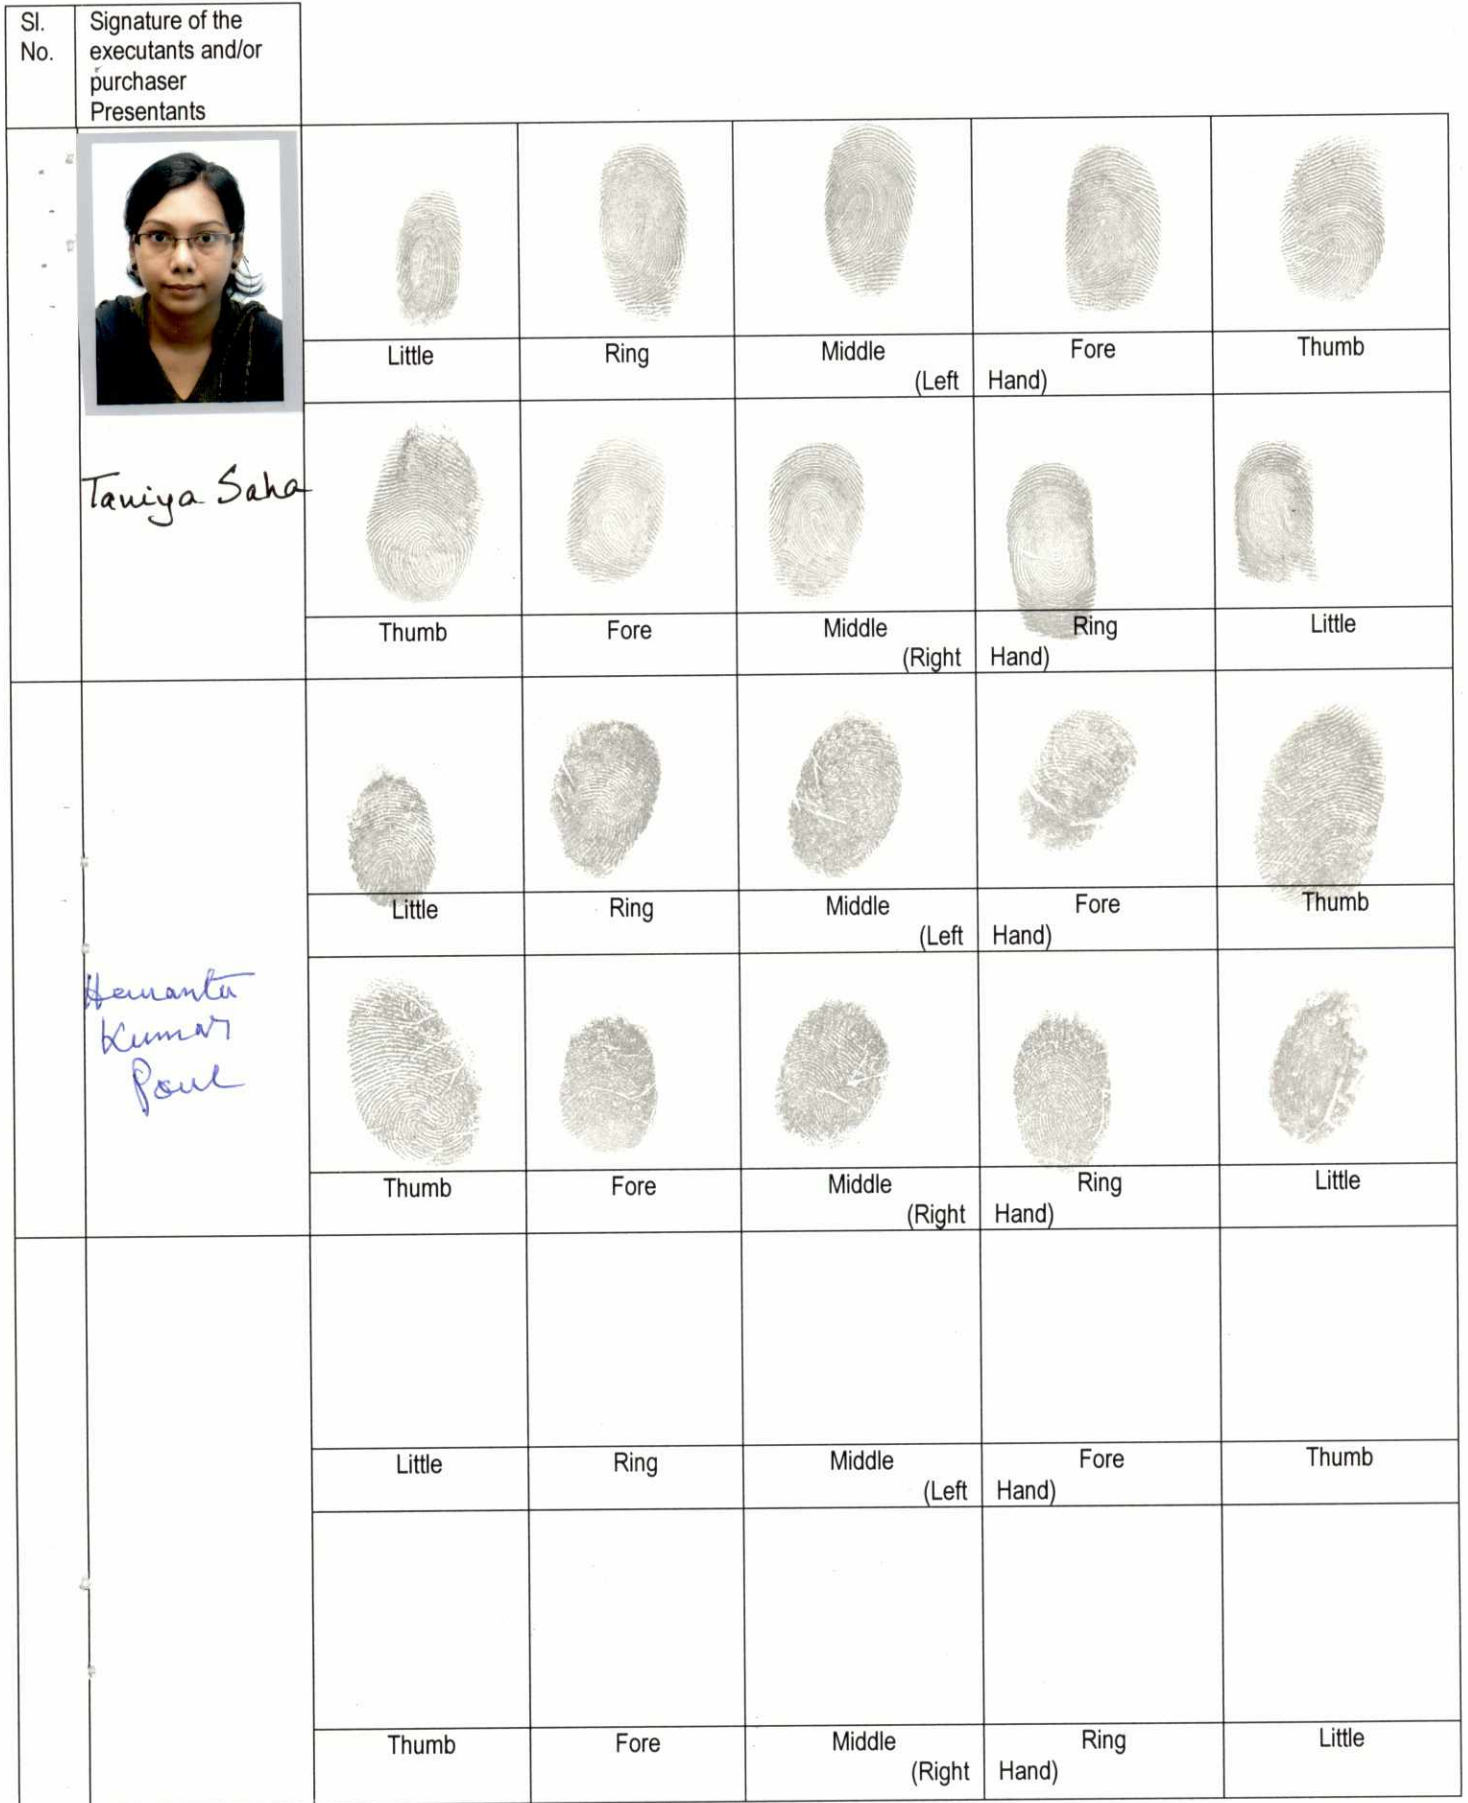 Sl. No.
Signature of the executants and/or purchaser Presentants
Little Ring Middle Fore Thumb
(Left Hand)
Taniya Saha
Thumb Fore Middle Ring Little
(Right Hand)
Little Ring Middle Fore Thumb
(Left Hand)
Hemanta
Kumar
Paul
Thumb Fore Middle Ring Little
(Right Hand)
Little Ring Middle Fore Thumb
(Left Hand)
Thumb Fore Middle Ring Little
(Right Hand)